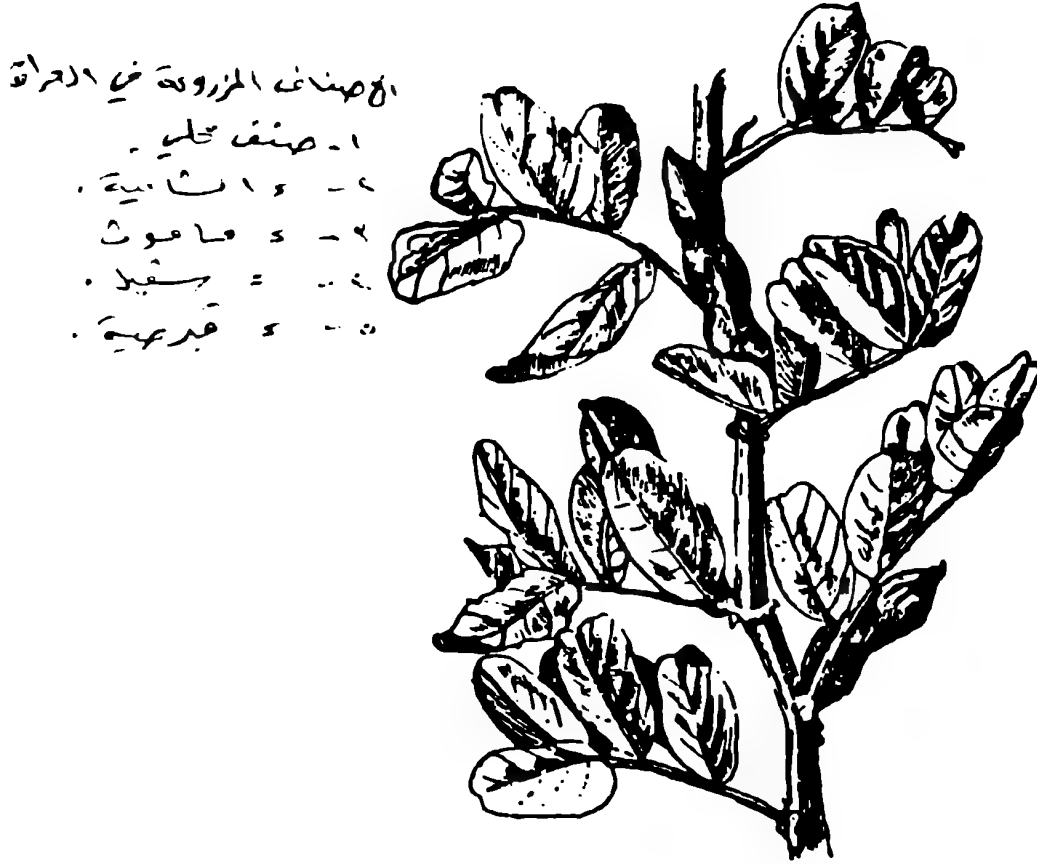 الاصناف المزروعة في العراق
١- صنف محلي .
٢- = الشامية .
٣- = ماموث
٤- = سفيد .
٥- = قبرصية .